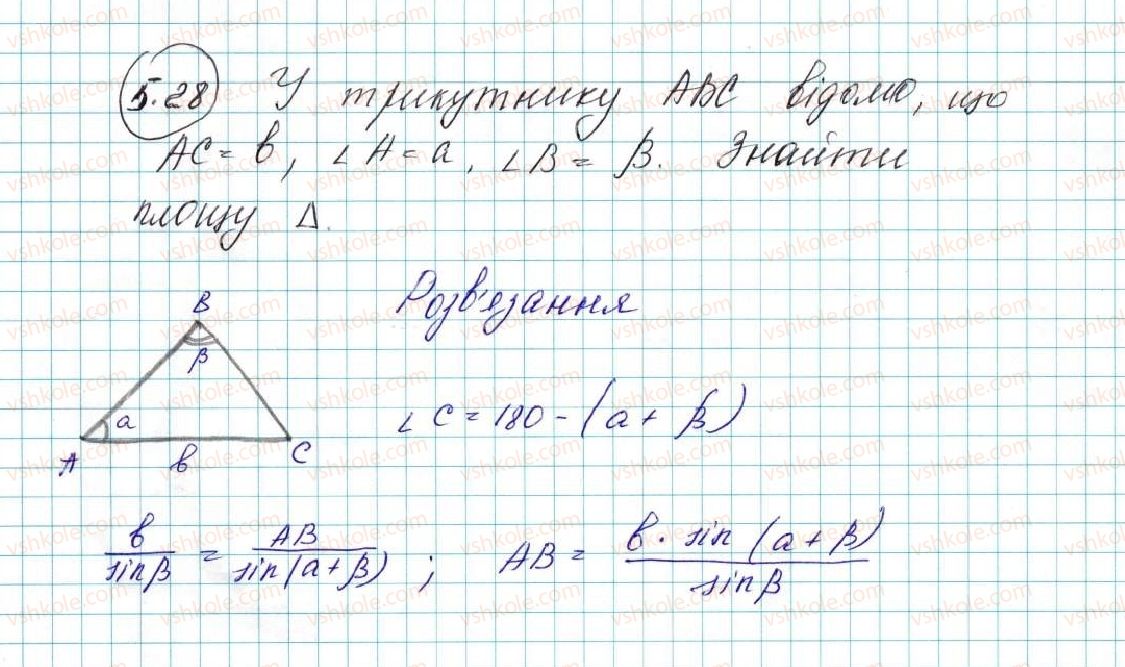 5.28 У трикутнику ABC відомо, що
AC = b, ∠A = a, ∠B = β. Знайти
площу Δ.
Розв'язання
B
β
a
A
b
C
∠C = 180 - (a + β)
b/sinβ = AB/sin(a + β); AB = b · sin(a + β)/sinβ